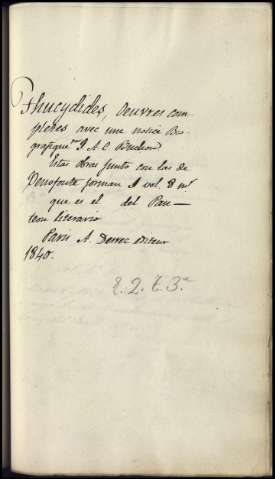 Thucydides, Oeuvres com-
pletes avec une notice Bio-
grafique J. A. C. Buchon
Estas obras junto con las de
Xenofonte forman 1 vol. 8 mr
que es el del Pan-
teon literario
Paris A. Desrec editeur
1840.
E. 2. t. 3.a